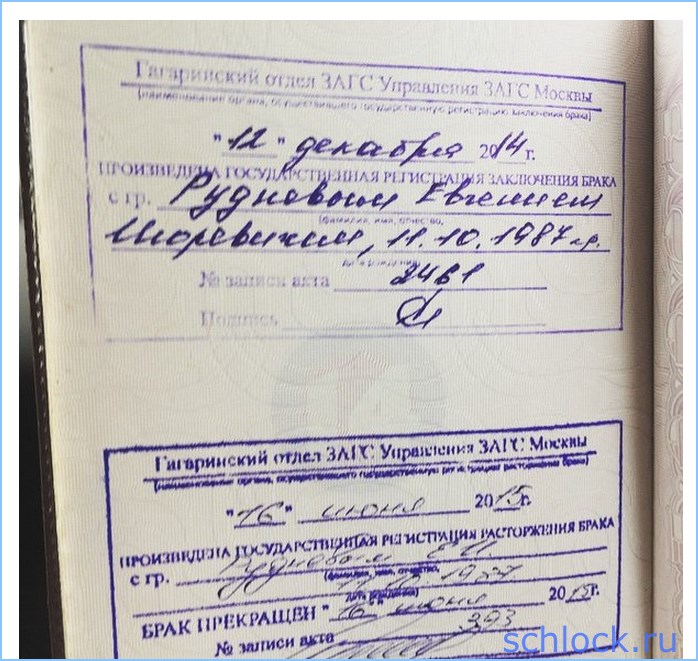 Гагаринский отдел ЗАГС Управления ЗАГС Москвы
(наименование органа, осуществившего государственную регистрацию заключения брака)
"12" декабря 2014 г.
ПРОИЗВЕДЕНА ГОСУДАРСТВЕННАЯ РЕГИСТРАЦИЯ ЗАКЛЮЧЕНИЯ БРАКА
с гр. Рудновым Евгением
(фамилия, имя, отчество,
Игоревичем, 11.10.1987 г.р.
дата рождения)
№ записи акта 2461
Подпись
Гагаринский отдел ЗАГС Управления ЗАГС Москвы
(наименование органа, осуществившего государственную регистрацию расторжения брака)
"16" июня 2015г.
ПРОИЗВЕДЕНА ГОСУДАРСТВЕННАЯ РЕГИСТРАЦИЯ РАСТОРЖЕНИЯ БРАКА
с гр. Рудновым Е.И.
(фамилия, имя, отчество,
1987.
дата рождения)
БРАК ПРЕКРАЩЕН "16" июня 2015г.
№ записи акта 393
schlock.ru